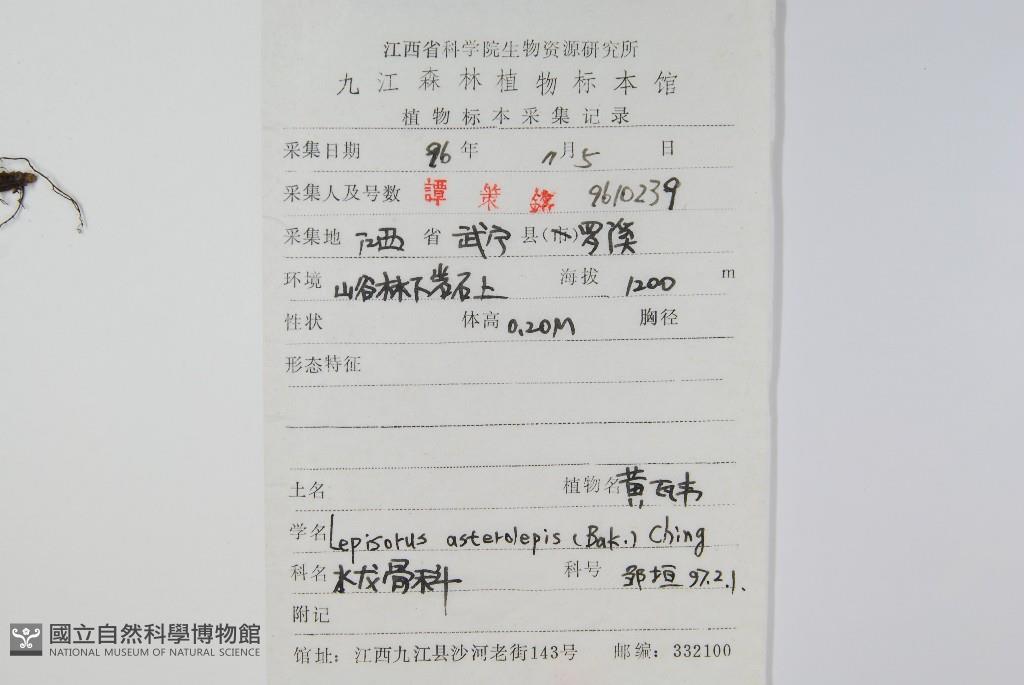 江西省科学院生物资源研究所
九江森林植物标本馆
植物标本采集记录
采集日期 96 年 月 5 日
采集人及号数 譚策銘 9610239
采集地 江西 省 武宁 县(市) 罗溪
环境 山谷林下岩石上 海拔 1200 m
性状 体高 0.20M 胸径
形态特征
土名 植物名 黄瓦韦
学名 Lepisorus asterolepis (Bak.) Ching
科名 水龙骨科 科号 邹垣 97.2.1.
附记
馆址：江西九江县沙河老街143号 邮编：332100
國立自然科學博物館
NATIONAL MUSEUM OF NATURAL SCIENCE